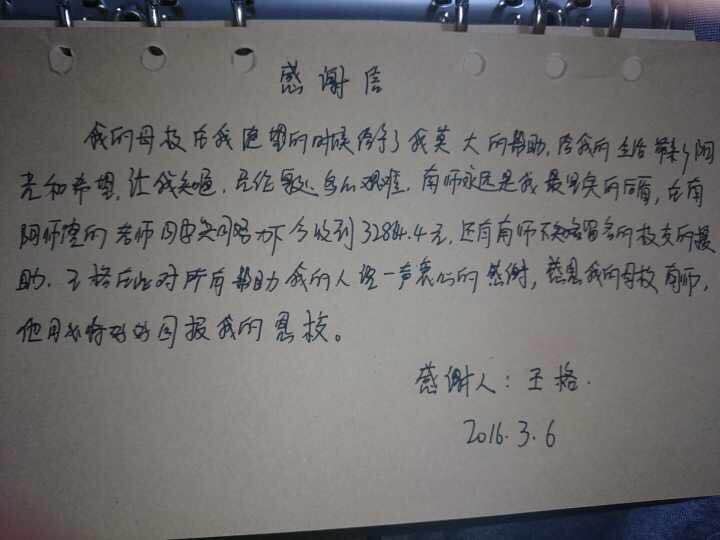 感谢信
我的母校在我绝望的时候给予了我莫大的帮助,给我的生活带来了阳
光和希望,让我知道,无论多么艰难,南师永远是我最坚实的后盾,在南
阳师院的老师同学共同努力下今收到32884.4元,还有南师不知名留名的校友的援
助.王格在此对所有帮助我的人说一声衷心的感谢,感恩我的母校南师,
他日我将好好回报我的恩校。
感谢人:王格.
2016.3.6